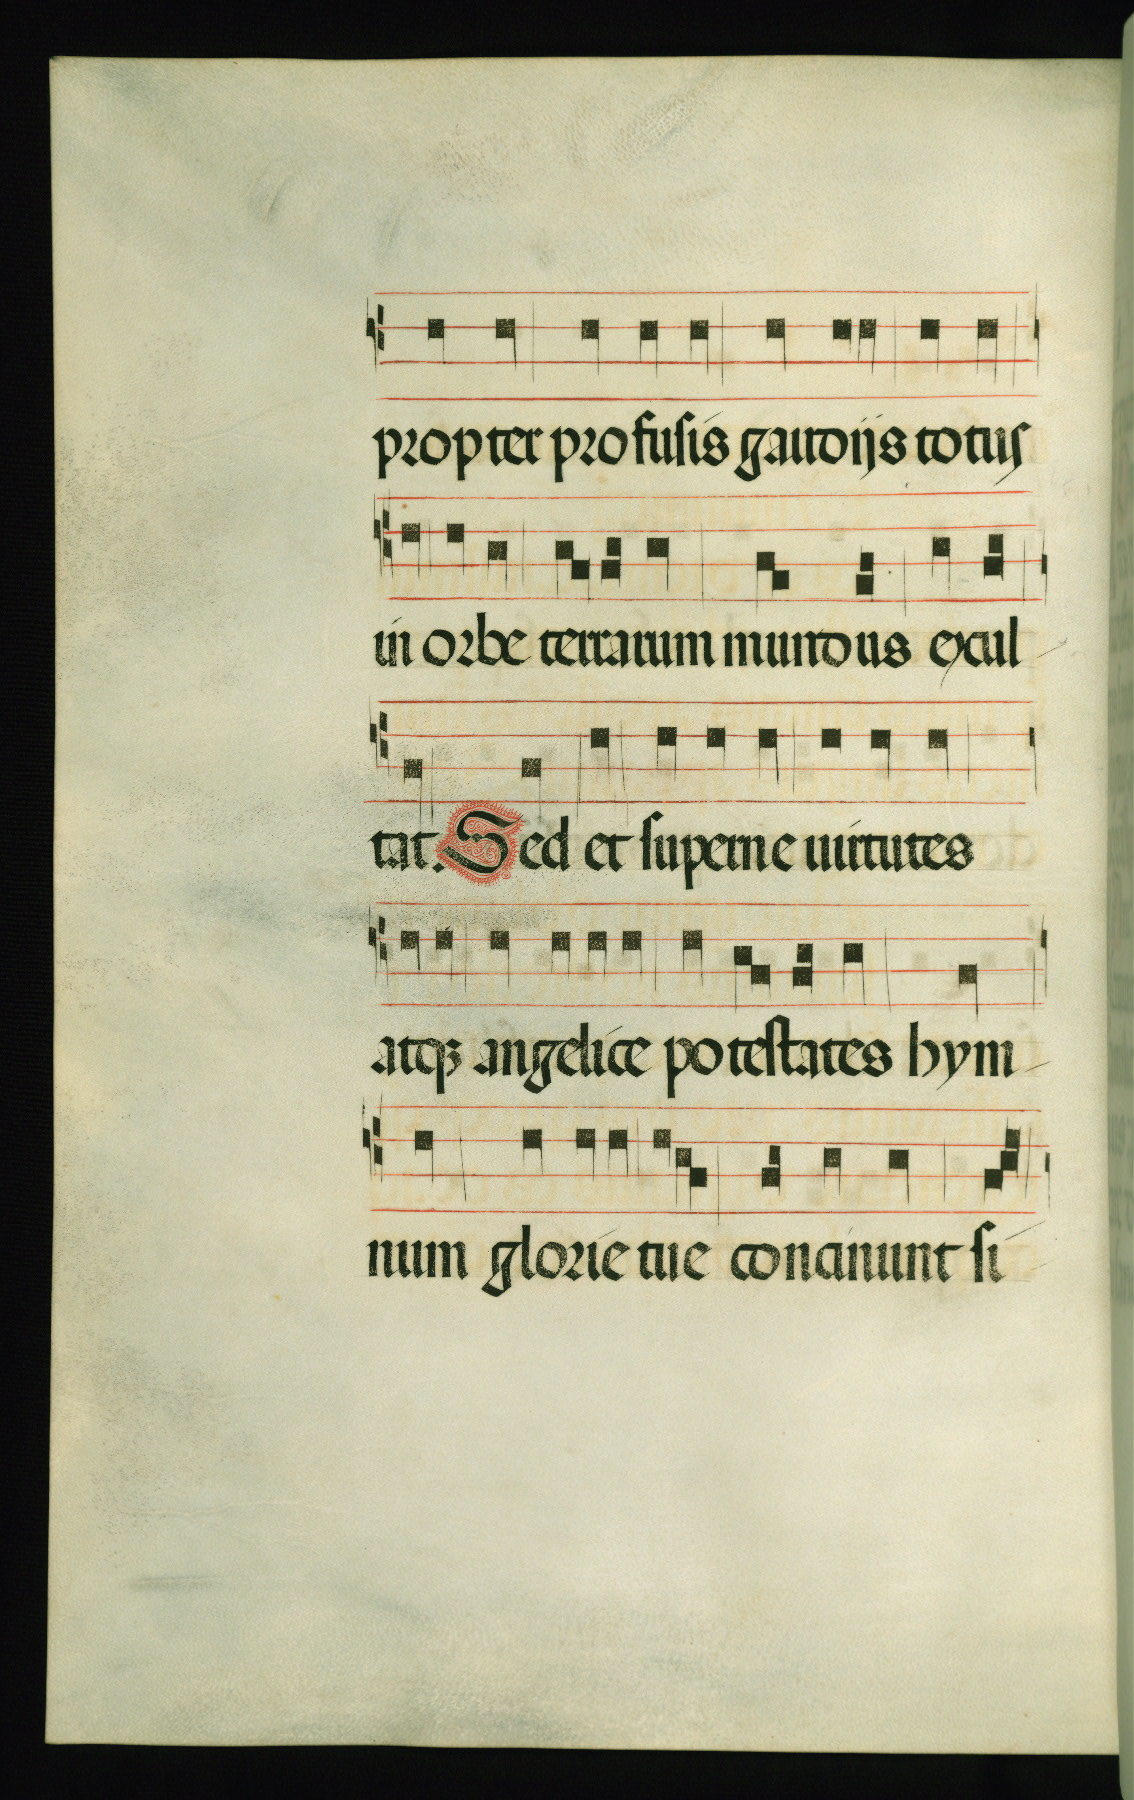 propter profusis gaudijs totus
in orbe terrarum mundus exul
tat. Sed et superne uirtutes
atqꝫ angelice potestates hym
num glorie tue concinunt si